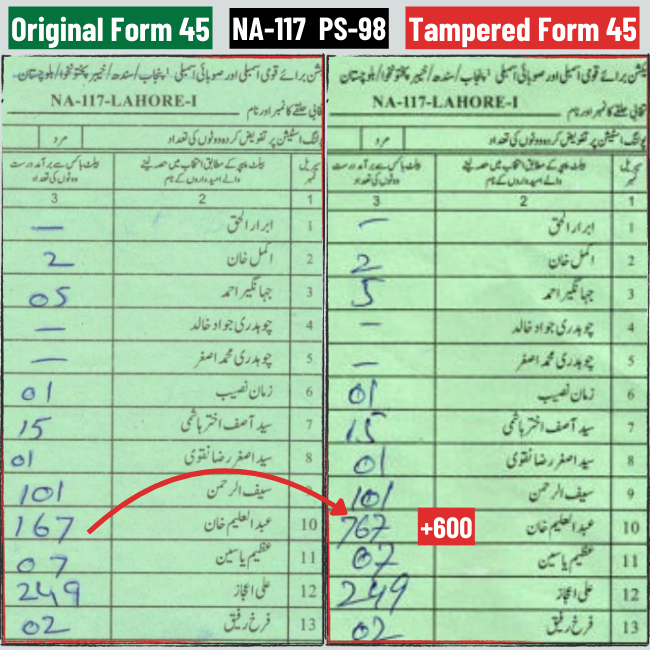 Original Form 45
NA-117 PS-98
Tampered Form 45
کشن برائے قومی اسمبلی اور صوبائی اسمبلی پنجاب/سندھ/خیبر پختونخوا/بلوچستان
NA-117-LAHORE-I
حلقے کا نمبر اور نام
پولنگ اسٹیشن پر تفویض کردہ ووٹوں کی تعداد
مرد
سیریل نمبر
بیلٹ پیپر کے مطابق انتخاب میں حصہ لینے والے امیدواروں کے نام
بیلٹ باکس سے برآمد درست ووٹوں کی تعداد
1 2 3
1 ابرار الحق —
2 اکمل خان 2
3 جہانگیر احمد 05
4 چوہدری جواد خالد —
5 چوہدری محمد اصغر —
6 زمان نصیب 01
7 سید آصف اختر ہاشمی 15
8 سید اصغر رضا نقوی 01
9 سیف الرحمن 101
10 عبدالعلیم خان 167
11 عظیم یاسین 07
12 علی اعجاز 249
13 فرخ رفیق 02
کشن برائے قومی اسمبلی اور صوبائی اسمبلی پنجاب/سندھ/خیبر پختونخوا/بلوچستان
NA-117-LAHORE-I
حلقے کا نمبر اور نام
پولنگ اسٹیشن پر تفویض کردہ ووٹوں کی تعداد
مرد
سیریل نمبر
بیلٹ پیپر کے مطابق انتخاب میں حصہ لینے والے امیدواروں کے نام
بیلٹ باکس سے برآمد درست ووٹوں کی تعداد
1 2 3
1 ابرار الحق —
2 اکمل خان 2
3 جہانگیر احمد 5
4 چوہدری جواد خالد —
5 چوہدری محمد اصغر —
6 زمان نصیب 01
7 سید آصف اختر ہاشمی 15
8 سید اصغر رضا نقوی 01
9 سیف الرحمن 101
10 عبدالعلیم خان 767
+600
11 عظیم یاسین 07
12 علی اعجاز 249
13 فرخ رفیق 02